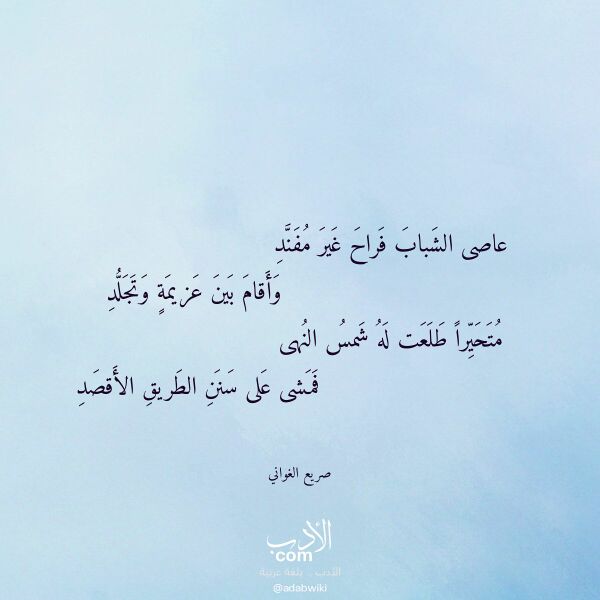 عاصى الشَبابَ فَراحَ غَيرَ مُفَنَّدِ
وَأَقامَ بَينَ عَزيمَةٍ وَتَجَلُّدِ
مُتَحَيِّراً طَلَعَت لَهُ شَمسُ النُهى
فَمَشى عَلى سَنَنِ الطَريقِ الأَقصَدِ
صريع الغواني
الأدب
com
الأدب .. بلغة عربية
@adabwiki